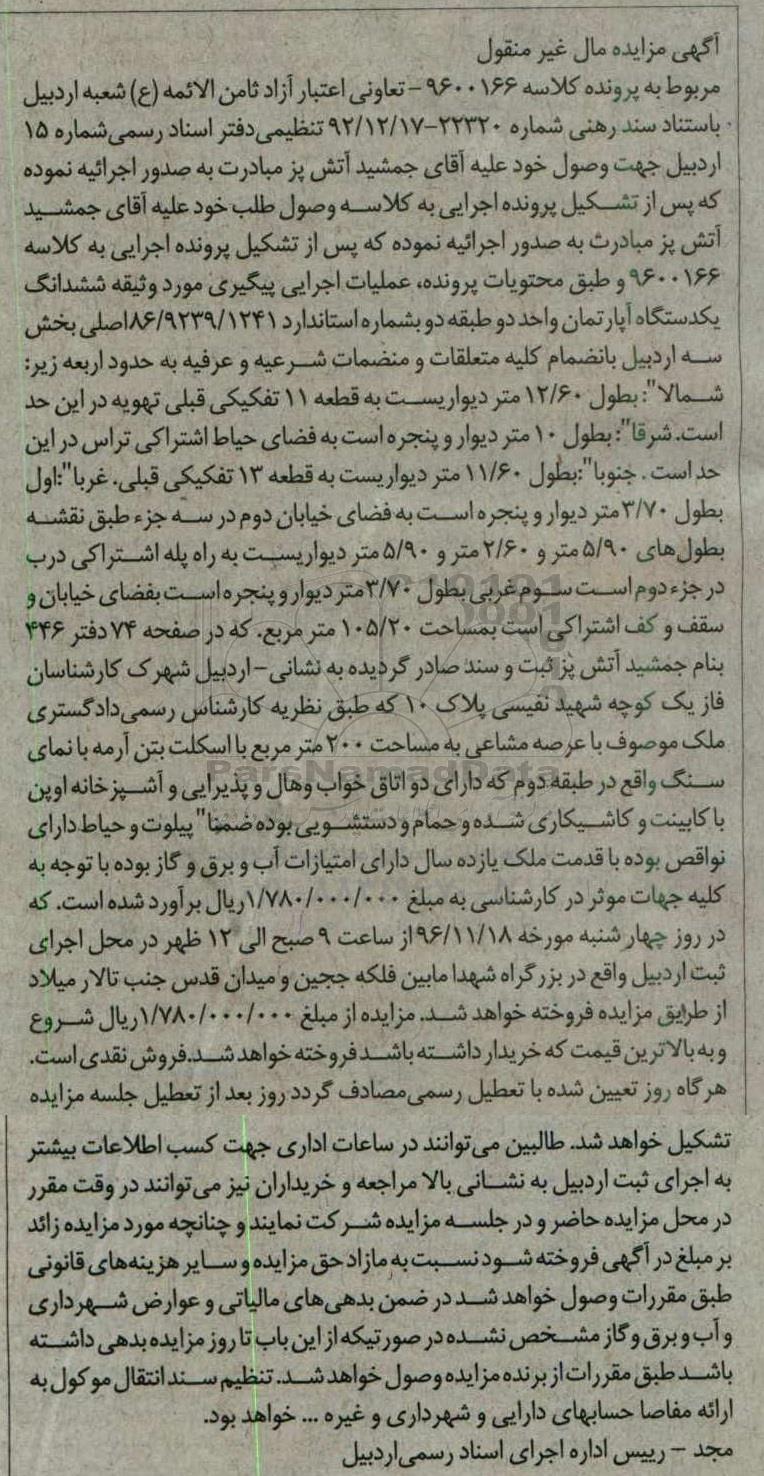 آگهی مزایده مال غیر منقول
مربوط به پرونده کلاسه ۹۶۰۰۱۶۶ - تعاونی اعتبار آزاد ثامن الائمه (ع) شعبه اردبیل
باستناد سند رهنی شماره ۲۲۳۲۰-۹۲/۱۲/۱۷ تنظیمی دفتر اسناد رسمی شماره ۱۵
اردبیل جهت وصول خود علیه آقای جمشید آتش پز مبادرت به صدور اجرائیه نموده
که پس از تشکیل پرونده اجرایی به کلاسه وصول طلب خود علیه آقای جمشید
آتش پز مبادرت به صدور اجرائیه نموده که پس از تشکیل پرونده اجرایی به کلاسه
۹۶۰۰۱۶۶ و طبق محتویات پرونده، عملیات اجرایی پیگیری مورد وثیقه ششدانگ
یکدستگاه آپارتمان واحد دو طبقه دو بشماره استاندارد ۸۶/۹۲۳۹/۱۲۴۱اصلی بخش
سه اردبیل بانضمام کلیه متعلقات و منضمات شرعیه و عرفیه به حدود اربعه زیر:
شمالا": بطول ۱۲/۶۰ متر دیواریست به قطعه ۱۱ تفکیکی قبلی تهویه در این حد
است. شرقا": بطول ۱۰ متر دیوار و پنجره است به فضای حیاط اشتراکی تراس در این
حد است. جنوبا":بطول ۱۱/۶۰ متر دیواریست به قطعه ۱۳ تفکیکی قبلی. غربا":اول
بطول ۳/۷۰ متر دیوار و پنجره است به فضای خیابان دوم در سه جزء طبق نقشه
بطول‌های ۵/۹۰ متر و ۲/۶۰ متر و ۵/۹۰ متر دیواریست به راه پله اشتراکی درب
در جزء دوم است سوم غربی بطول ۳/۷۰متر دیوار و پنجره است بفضای خیابان و
سقف و کف اشتراکی است بمساحت ۱۰۵/۲۰ متر مربع. که در صفحه ۷۴ دفتر ۴۴۶
بنام جمشید آتش پز ثبت و سند صادر گردیده به نشانی-اردبیل شهرک کارشناسان
فاز یک کوچه شهید نفیسی پلاک ۱۰ که طبق نظریه کارشناس رسمی دادگستری
ملک موصوف با عرصه مشاعی به مساحت ۲۰۰ متر مربع با اسکلت بتن آرمه با نمای
سنگ واقع در طبقه دوم که دارای دو اتاق خواب وهال و پذیرایی و آشپزخانه اوپن
با کابینت و کاشیکاری شده و حمام و دستشویی بوده ضمنا" پیلوت و حیاط دارای
نواقص بوده با قدمت ملک یازده سال دارای امتیازات آب و برق و گاز بوده با توجه به
کلیه جهات موثر در کارشناسی به مبلغ ۱/۷۸۰/۰۰۰/۰۰۰ریال برآورد شده است. که
در روز چهار شنبه مورخه ۹۶/۱۱/۱۸از ساعت ۹ صبح الی ۱۲ ظهر در محل اجرای
ثبت اردبیل واقع در بزرگراه شهدا مابین فلکه ججین و میدان قدس جنب تالار میلاد
از طرایق مزایده فروخته خواهد شد. مزایده از مبلغ ۱/۷۸۰/۰۰۰/۰۰۰ریال شروع
و به بالاترین قیمت که خریدار داشته باشد فروخته خواهد شد.فروش نقدی است.
هرگاه روز تعیین شده با تعطیل رسمی مصادف گردد روز بعد از تعطیل جلسه مزایده
تشکیل خواهد شد. طالبین می‌توانند در ساعات اداری جهت کسب اطلاعات بیشتر
به اجرای ثبت اردبیل به نشانی بالا مراجعه و خریداران نیز می‌توانند در وقت مقرر
در محل مزایده حاضر و در جلسه مزایده شرکت نمایند و چنانچه مورد مزایده زائد
بر مبلغ در آگهی فروخته شود نسبت به مازاد حق مزایده و سایر هزینه‌های قانونی
طبق مقررات وصول خواهد شد در ضمن بدهی‌های مالیاتی و عوارض شهرداری
و آب و برق و گاز مشخص نشده در صورتیکه از این باب تا روز مزایده بدهی داشته
باشد طبق مقررات از برنده مزایده وصول خواهد شد. تنظیم سند انتقال موکول به
ارائه مفاصا حسابهای دارایی و شهرداری و غیره ... خواهد بود.
مجد - رییس اداره اجرای اسناد رسمی اردبیل
ParsNamadData